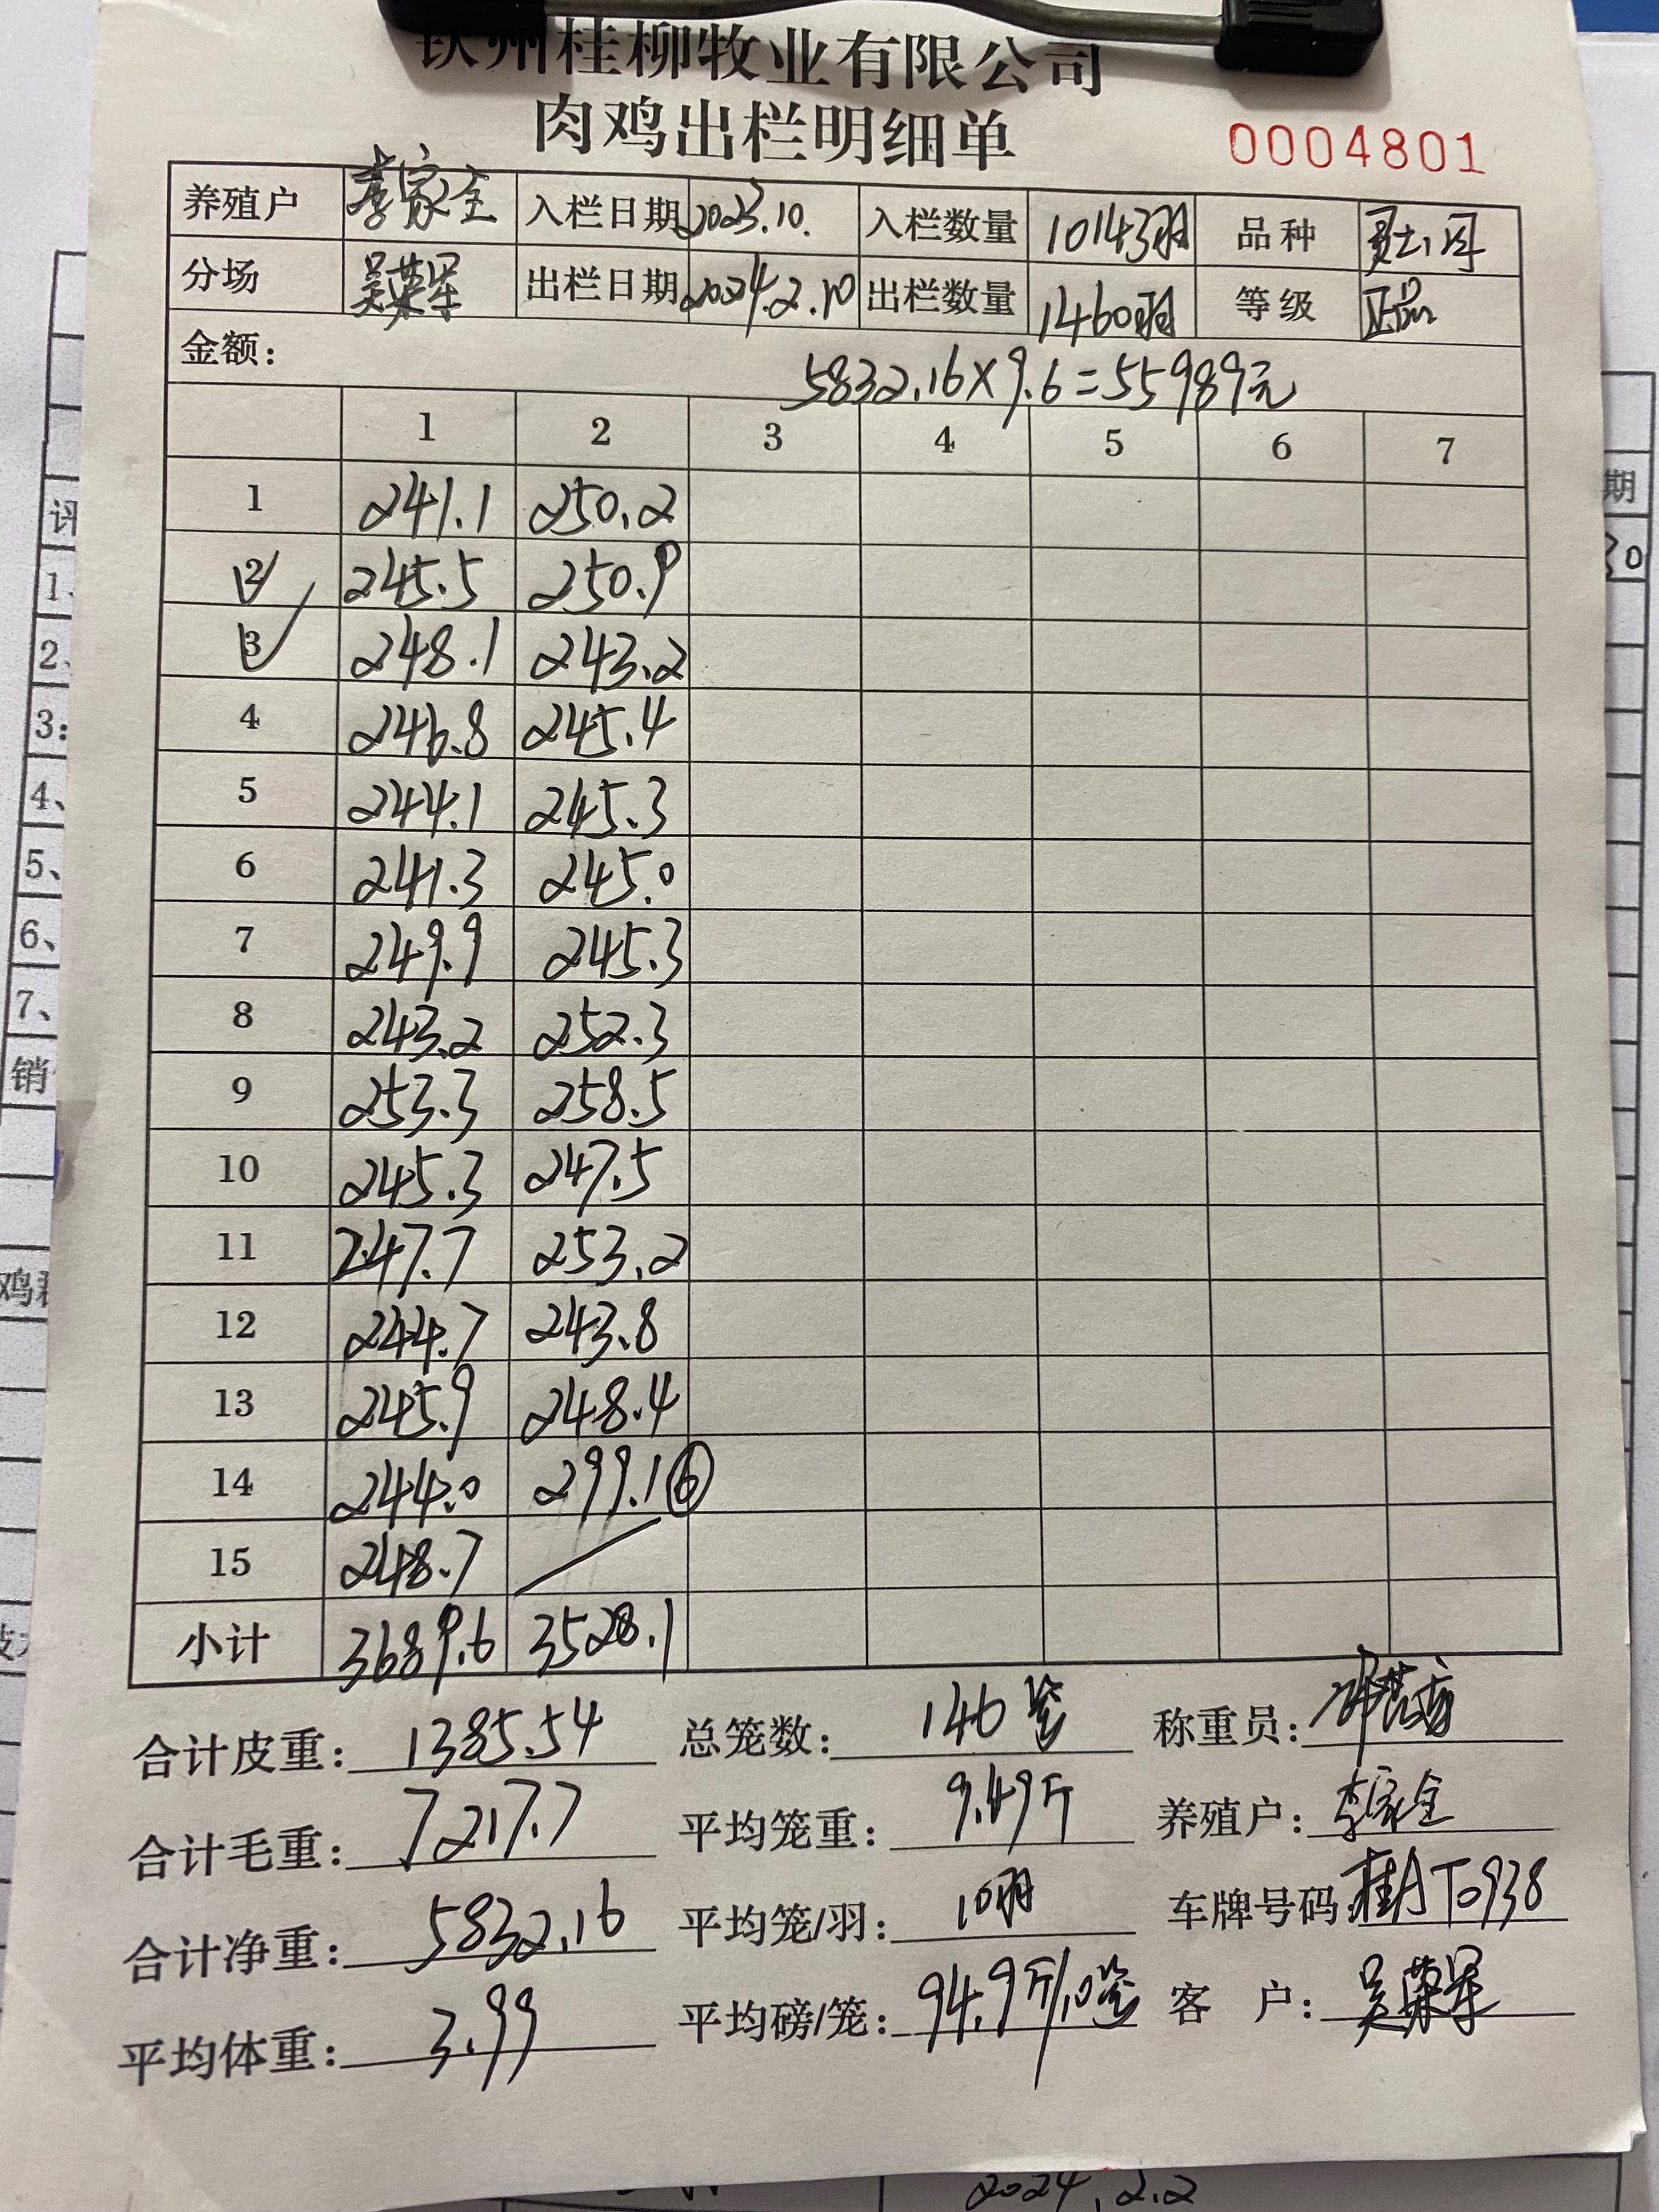 钦州桂柳牧业有限公司
肉鸡出栏明细单 0004801
养殖户 李家全 入栏日期 2023.10. 入栏数量 10143羽 品种
分场 吴荣军 出栏日期 2024.2.10 出栏数量 1460羽 等级 正品
金额: 5832.16×9.6=55989元
1 2 3 4 5 6 7
1 241.1 250.2
2 245.5 250.9
3 248.1 243.2
4 246.8 245.4
5 244.1 245.3
6 241.3 245.0
7 249.9 245.3
8 243.2 252.3
9 253.3 258.5
10 245.3 247.5
11 247.7 253.2
12 244.7 243.8
13 245.9 248.4
14 244.0 299.1 ⑥
15 248.7
小计 3689.6 3528.1
合计皮重: 1385.54 总笼数: 146笼 称重员:
合计毛重: 7217.7 平均笼重: 9.49斤 养殖户: 李家全
合计净重: 5832.16 平均笼/羽: 10羽 车牌号码: 桂AT0938
平均体重: 3.99 平均磅/笼: 94.9斤/10笼 客 户: 吴荣军
评
1、
2、
3:
4、
5、
6、
7、
销
期
30
2024.2.2